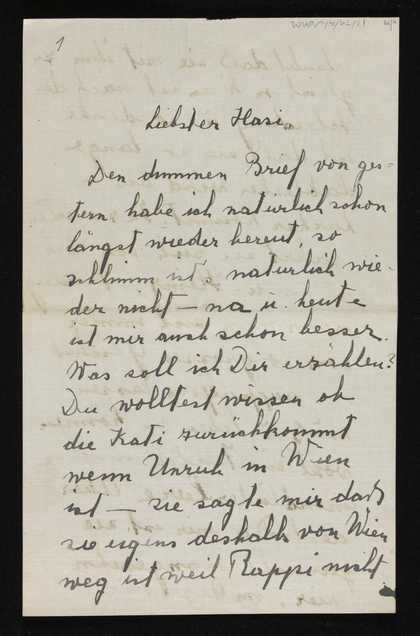 1
Liebster Hasi.
Den dummen Brief von ges-
tern habe ich natürlich schon
längst wieder bereut, so
schlimm ist's natürlich wie-
der nicht — na u. heute
ist mir auch schon besser.
Was soll ich Dir erzählen?
Du wolltest wissen ob
die Kati zurückkommt
wenn Unruh in Wien
ist — sie sagte mir dass
sie eigens deshalb von Wien
weg ist weil Pappi nicht